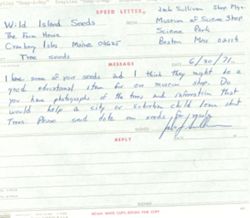 SPEED LETTER
Wild Island Seeds
Jack Sullivan Shop Mgr.
The Farm House
Museum of Science Shop
Cranberry Isles Maine 04625
Science Park
Boston Mass 02114
Tree seeds
6/30/71.
MESSAGE
I have some of your seeds and I think they might be a
good educational item for our museum shop. Do
you have photographs of the trees and information that
would help a city or suburban child learn about
trees. Please send data on seeds for
REPLY